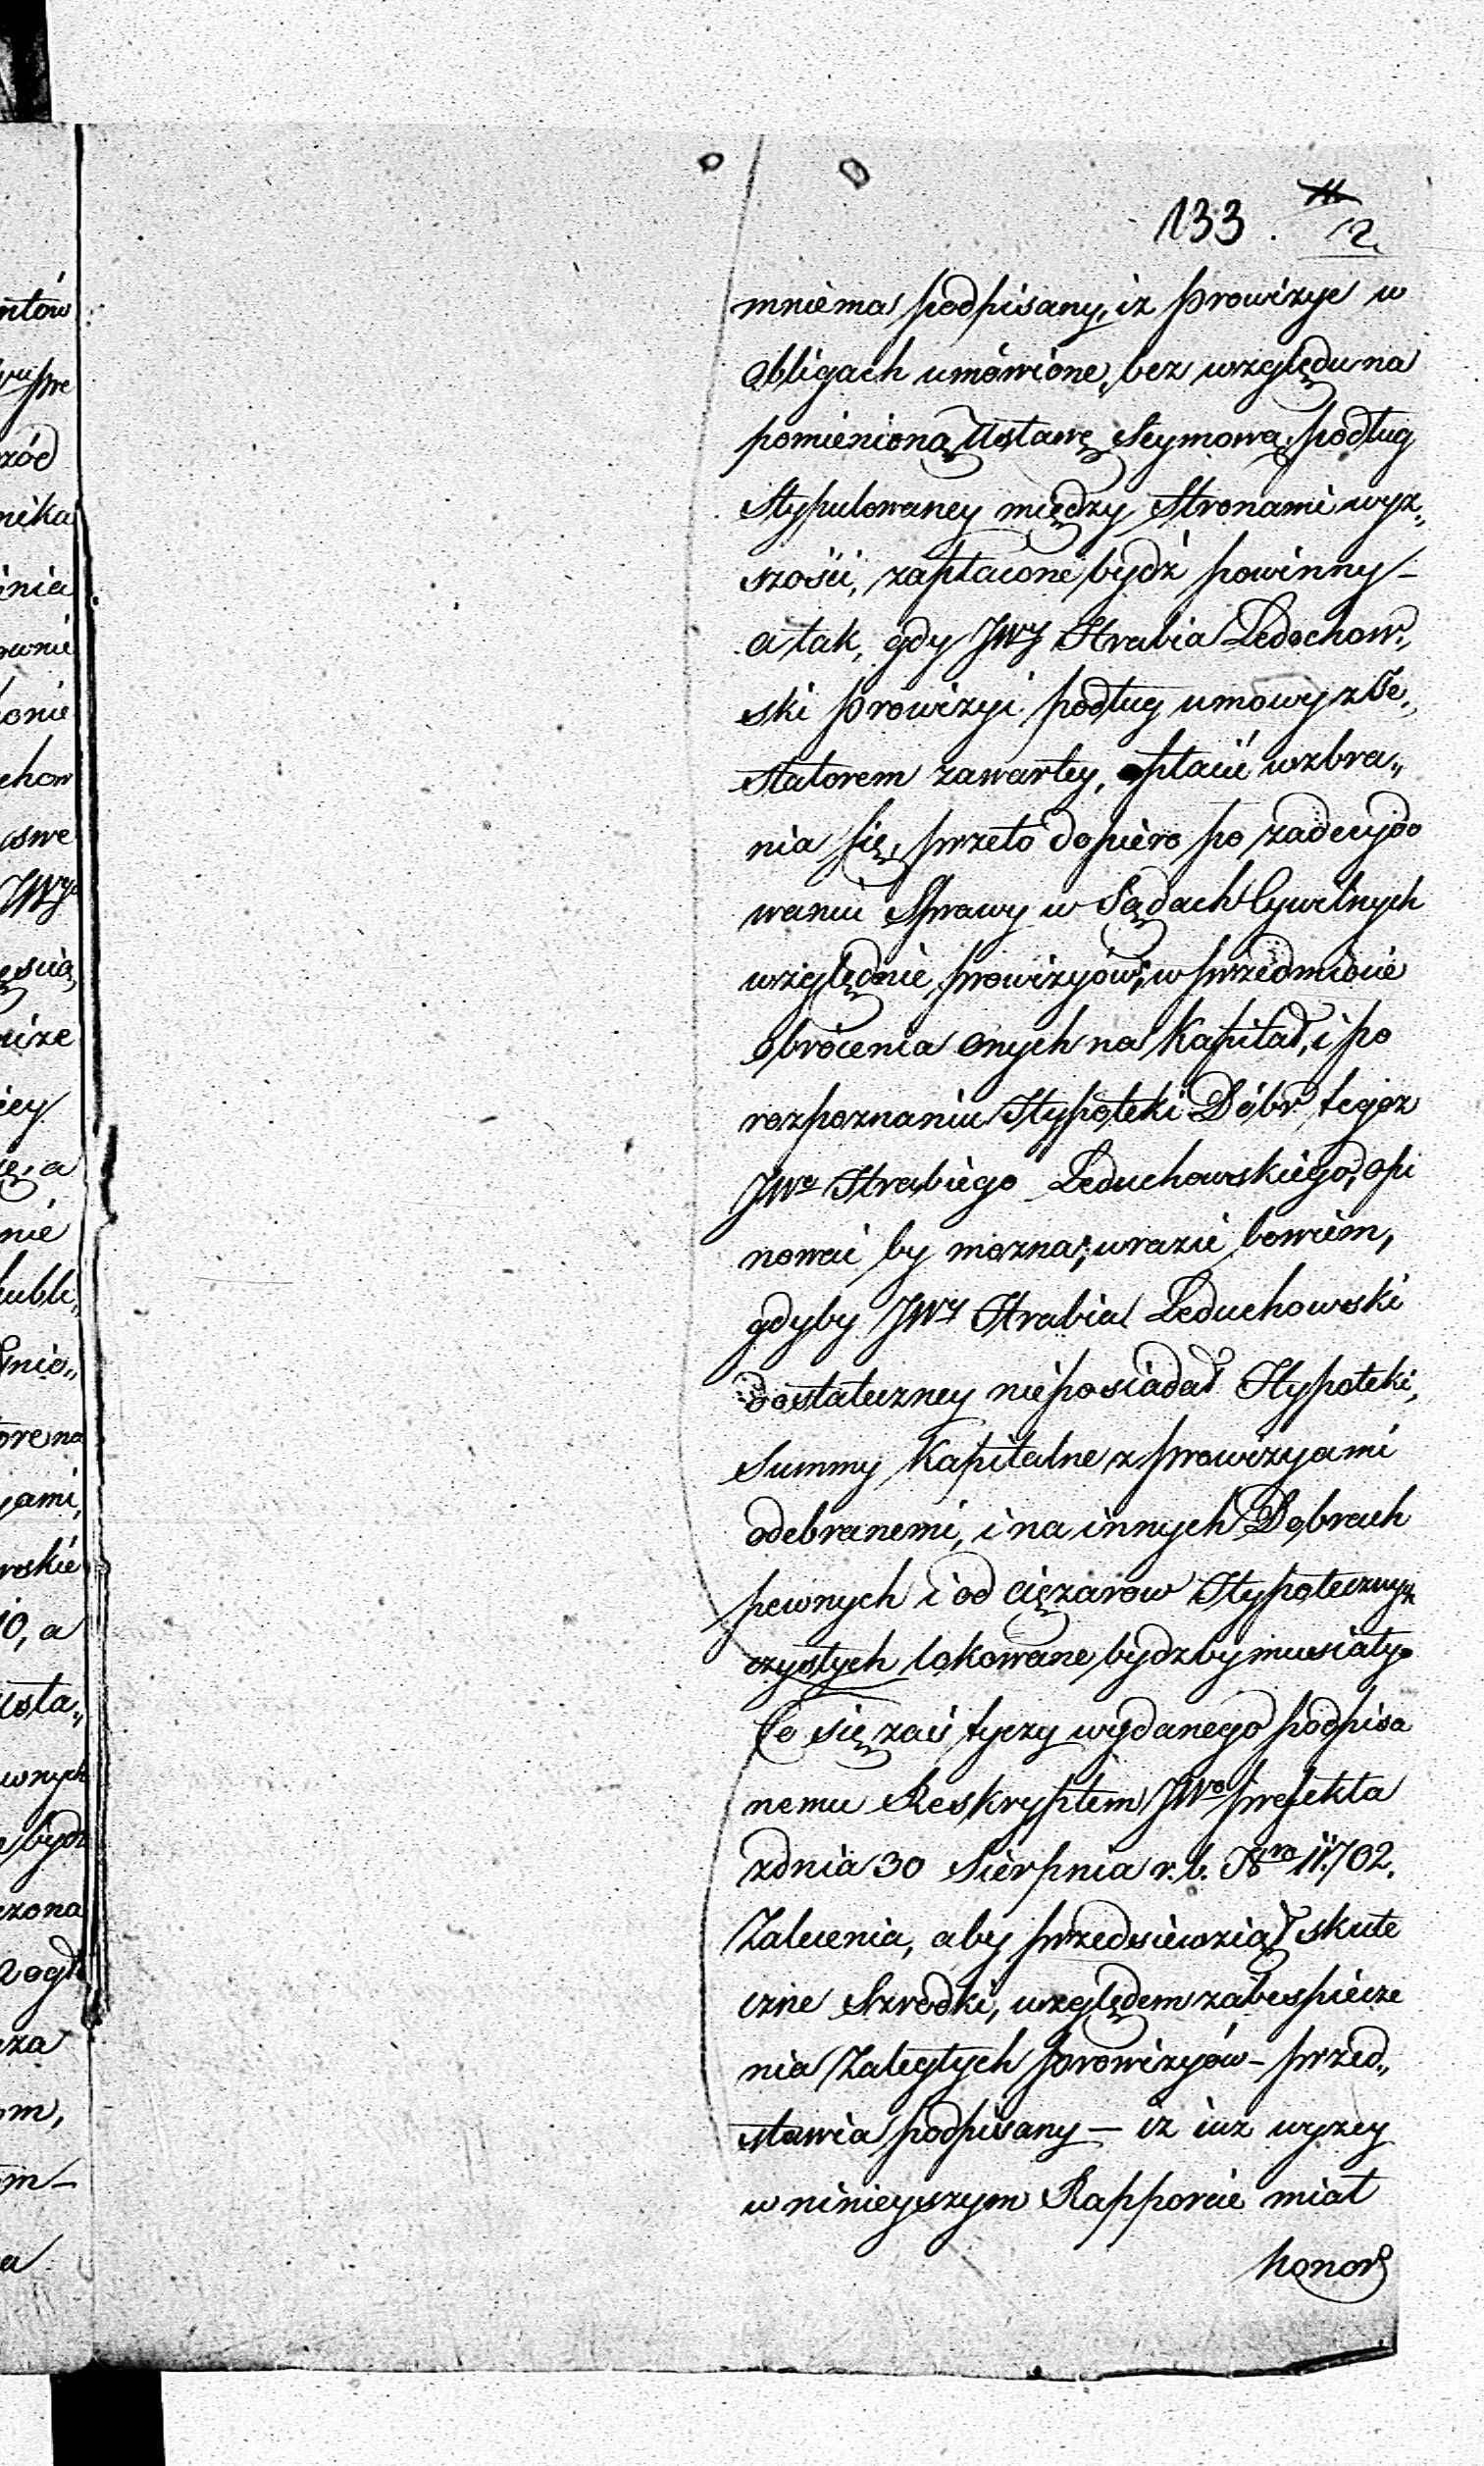 133. 12.
mniema podpisany, iz prowizye w
Obligach umówione, bez względu na
pomienioną Ustawę Seymową, podług
Stypulowaney między Stronami wyz„
szości, zapłacone bydź powinny –
a tak, gdy JWy Hrabia Ledochow„
ski prowizyi podług umowy z Te„
statorem zawartey, opłacić wzbra„
nia się, przeto dopiero po zadecydo
waniu Sprawy w Sądach Cywilnych
względnie prowizyów, w przedmiocie
obrócenia onych na Kapitał, i po
rozpoznaniu Hypoteki Dóbr tegoz
JWo Hrabiego Leduchowskiego, opi
nować by mozna; w razie bowiem,
gdyby JWy Hrabia Leduchowski
dostateczney nieposiadał Hypoteki,
Summy Kapitalne z prowizyami
odebranemi, i na innych Dobrach
pewnych i od ciężarow Hypotecznych
czystych lokowane bydzby musiały.
Co się zaś tyczy wydanego podpisa
nemu Reskryptem JWo Prefekta
z dnia 30 Sierpnia r. b. Nro 11.702.
Zalecenia, aby przedsiewziął skute
czne Szrodki, względem zabespiecze
nia Zaległych prowizyów – przed„
stawia podpisany – iz iuz wyzey
w ninieyszym Rapporcie miał
honor
ntów
zód
nika
inia
ownie
onie
chow
JWgo
ęscią
nize
iey
ię, a
nie
publi„
nio„
tore na
yami,
wskie
10, a
usta„
wnych
bydz
czona
za
om,
em –
a